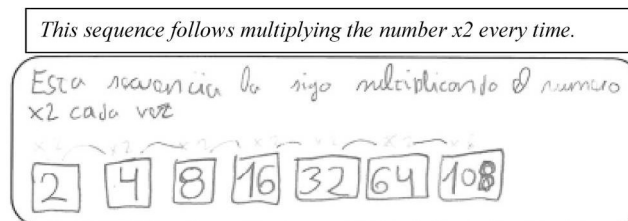 This sequence follows multiplying the number x2 every time.
Esta secuencia la sigo multiplicando el numero
x2 cada vez
2 4 8 16 32 64 108